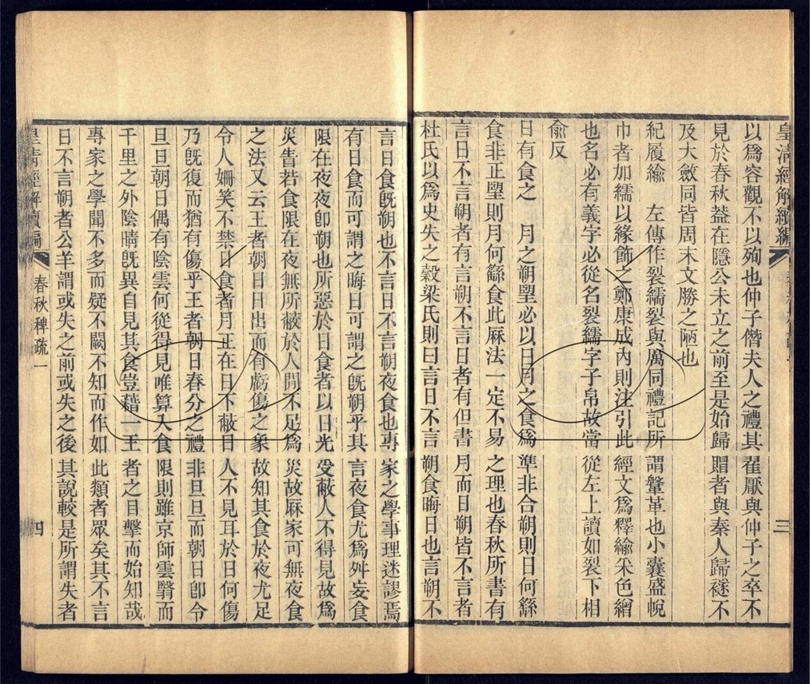 皇清經解續編
三
以爲容觀不以殉也仲子僭夫人之禮其翟厭與仲子之卒不
見於春秋葢在隱公未立之前至是始歸賵者與秦人歸襚不
及大斂同皆周末文勝之陋也
紀履緰 左傳作裂繻裂與厲同禮記所謂鞶革也小囊盛帨
巾者加繻以緣飾之鄭康成內則注引此經文爲釋緰采色繒
也名必有義字必從名裂繻字子帛故當從左上讀如裂下相
兪反
日有食之 月之朔望必以日月之食爲準非合朔則日何繇
食非正望則月何繇食此厤法一定不易之理也春秋所書有
言日不言朔者有言朔不言日者有但書月而日朔皆不言者
杜氏以爲史失之穀梁氏則曰言日不言朔食晦日也言朔不
言日食旣朔也不言日不言朔夜食也專家之學事理迷謬焉
有日食而可謂之晦日可謂之旣朔乎其言夜食尤爲舛妄食
限在夜夜卽朔也所惡於日食者以日光受蔽人不得見故爲
災眚若食限在夜無所蔽於人閒不足爲災故厤家可無夜食
之法又云王者朝日日出而有虧傷之象故知其食於夜尤足
令人姍笑不禁日食者月正在日下蔽日人不見耳於日何傷
乃旣復而猶有傷乎王者朝日春分之禮非旦旦而朝日卽令
旦旦朝日偶有陰雲何從得見唯算入食限則雖京師雲翳而
千里之外陰晴旣異自見其食豈藉一王者之目擊而始知哉
專家之學聞不多而疑不闕不知而作如此類者眾矣其不言
日不言朔者公羊謂或失之前或失之後其說較是所謂失者
皇清經解續編
春秋稗疏一
四